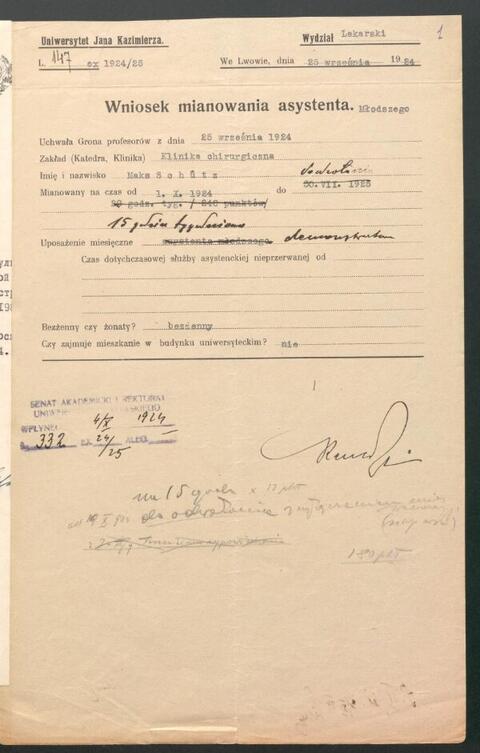 1
Uniwersytet Jana Kazimierza.
Wydział Lekarski
L. 147 ex 1924/25
We Lwowie, dnia 25 września 1924
Wniosek mianowania asystenta. Młodszego
Uchwała Grona profesorów z dnia 25 września 1924
Zakład (Katedra, Klinika) Klinika chirurgiczna
Imię i nazwisko Maks Schütz
Mianowany na czas od 1. X. 1924 do 30.VII. 1925
30 godz. tyg. / 240 punktów/
15 godzin tygodniowo
Uposażenie miesięczne asystenta młodszego demonstratora
Czas dotychczasowej służby asystenckiej nieprzerwanej od
Bezżenny czy żonaty? bezżenny
Czy zajmuje mieszkanie w budynku uniwersyteckim? nie
SENAT AKADEMICKI I REKTORAT
4/X 1924
332 ex 24/25
na 15 godz x 12 pkt
do odwołania
180 pkt